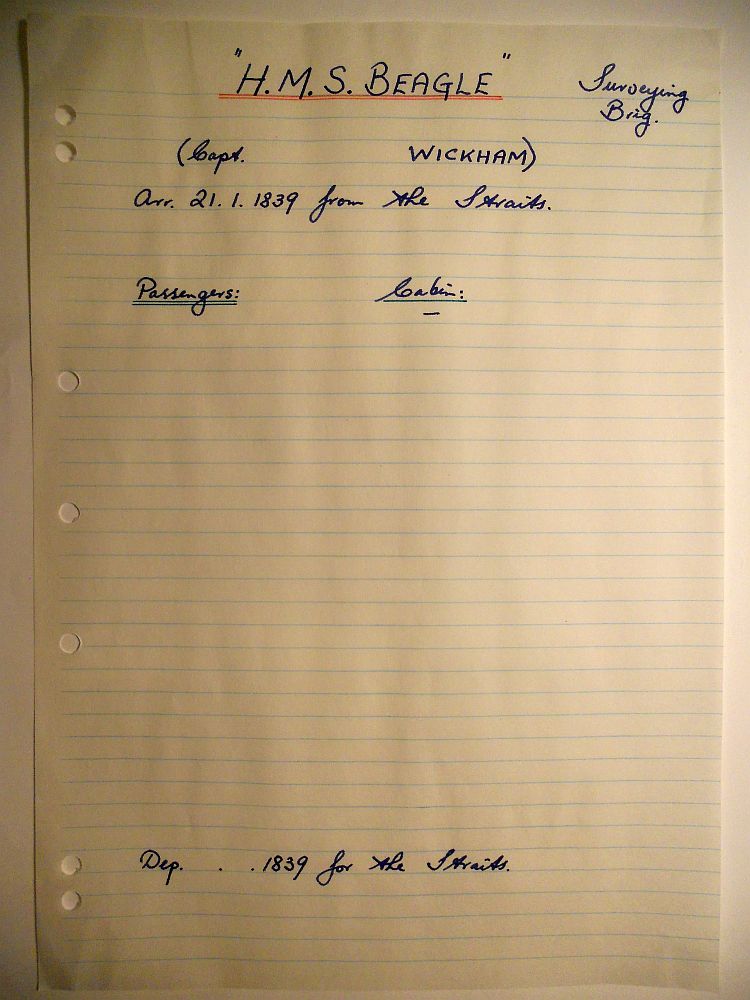 "H.M.S. BEAGLE"
Surveying
Brig.
(Capt. WICKHAM)
Arr. 21. 1. 1839 from the Straits.
Passengers: Cabin:
—
Dep. . . 1839 for the Straits.